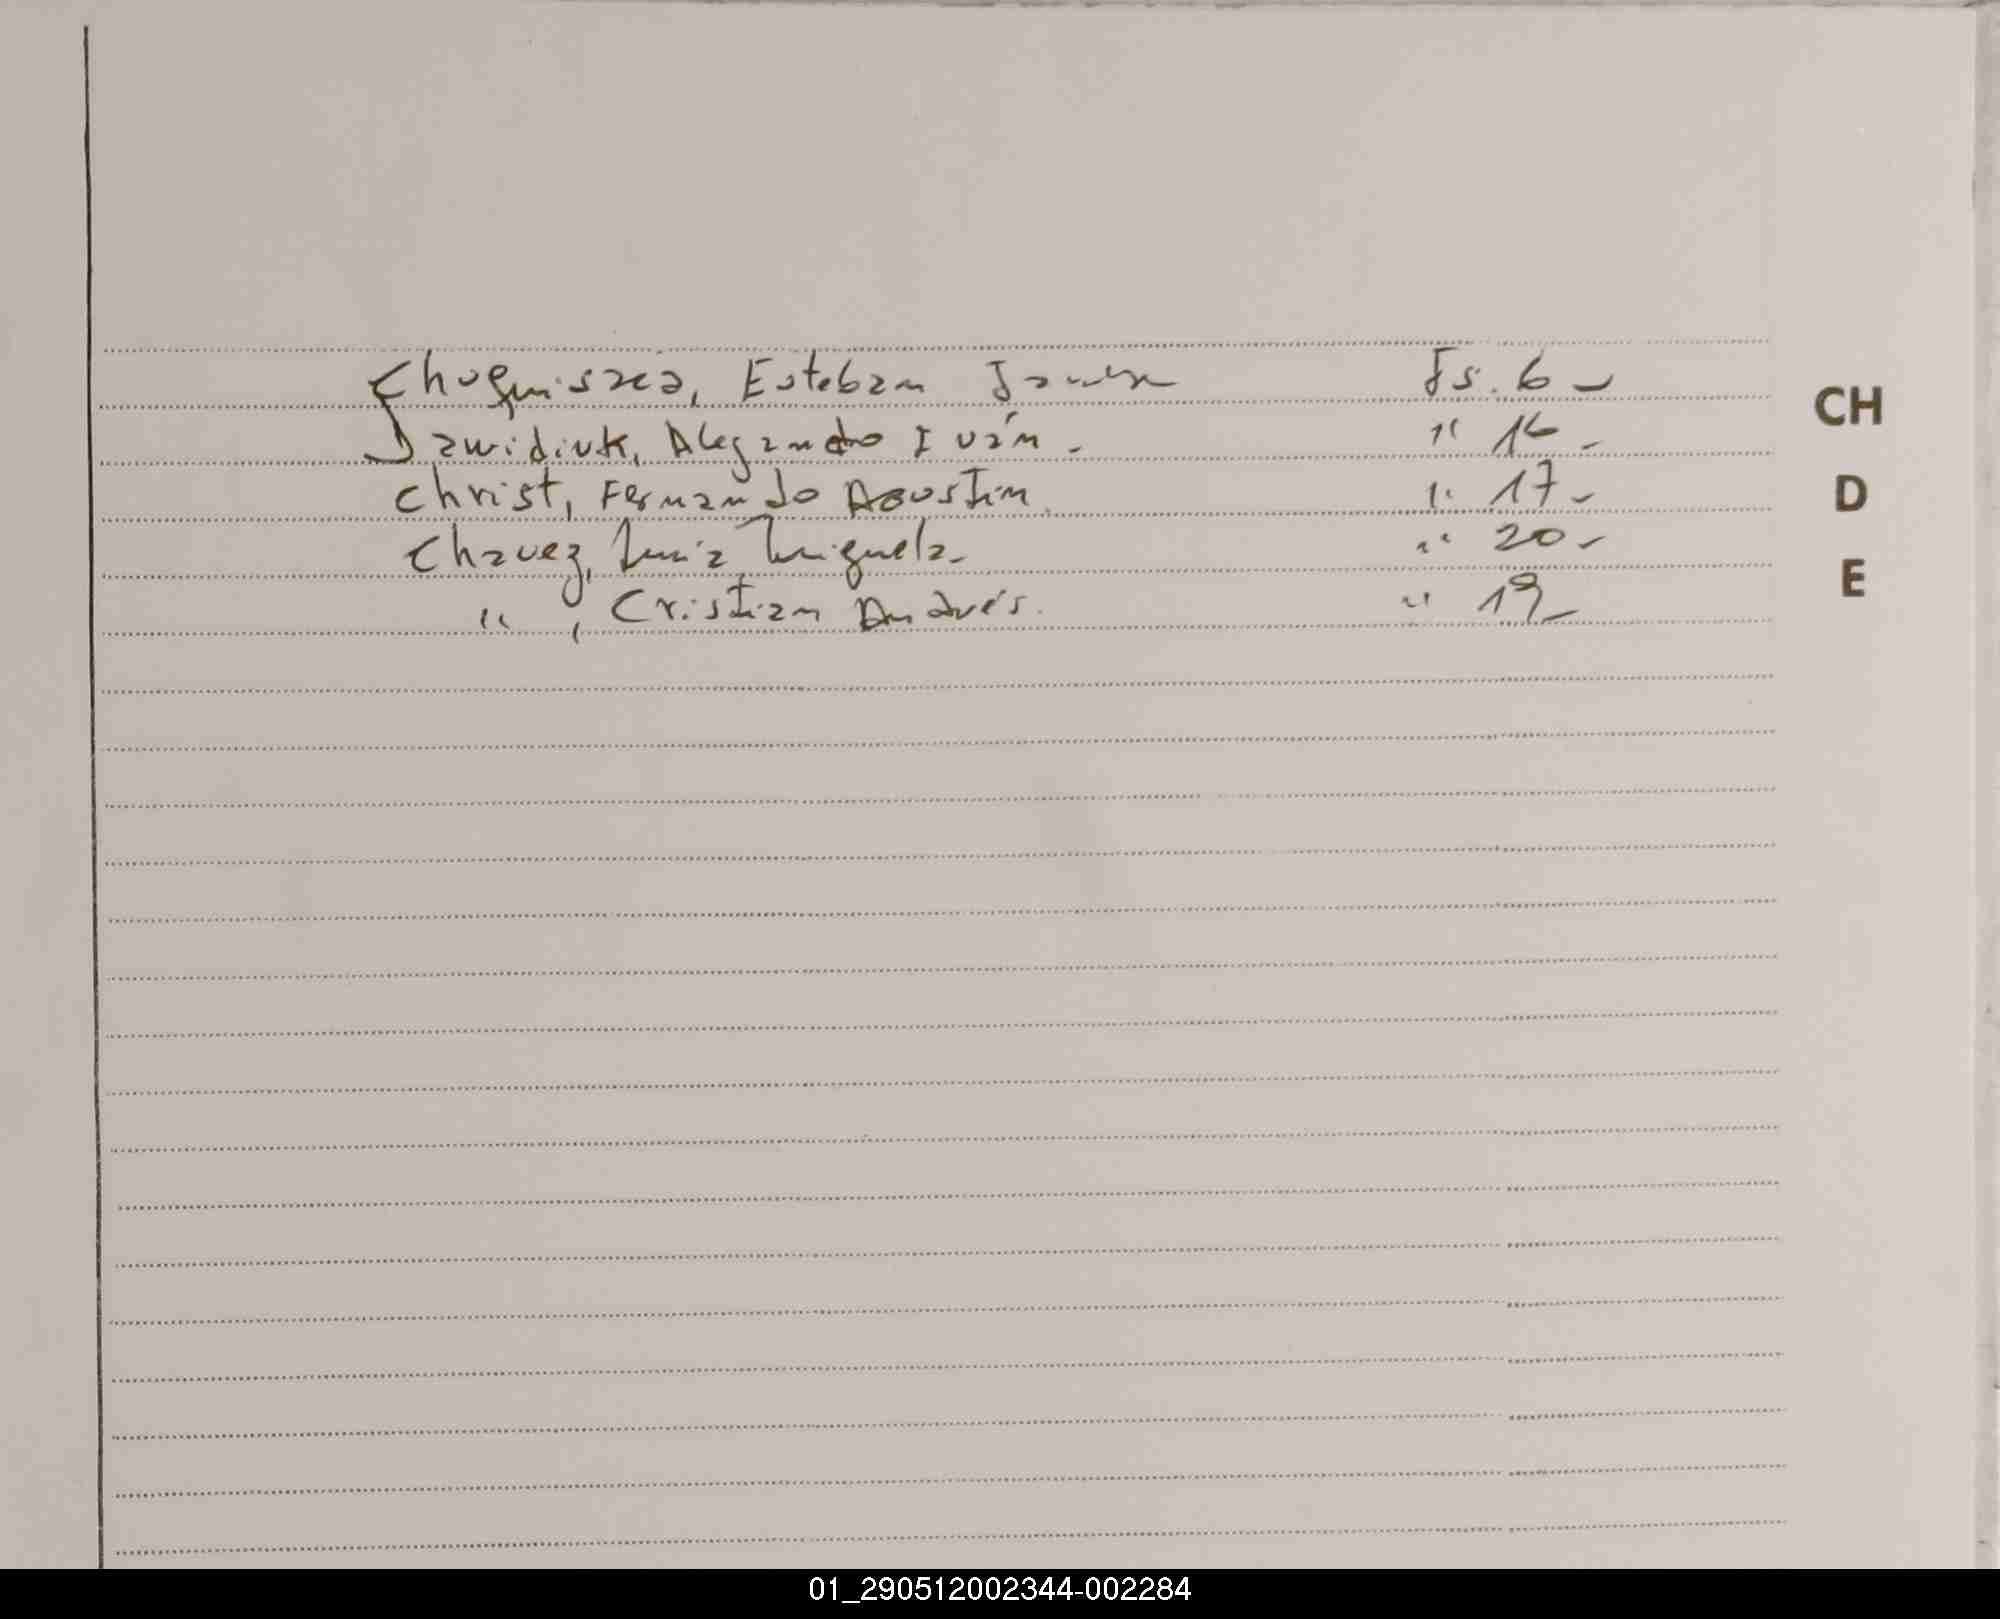 Chuquisaca, Esteban Javier Fs. 6 -
Dawidiuk, Alejandro Iván. " 16 -
Christ, Fernando Agustin. " 17 -
Chavez, Luis Miguel. " 20 -
" , Cristian Andrés. " 19 -
CH
D
E
01_290512002344-002284